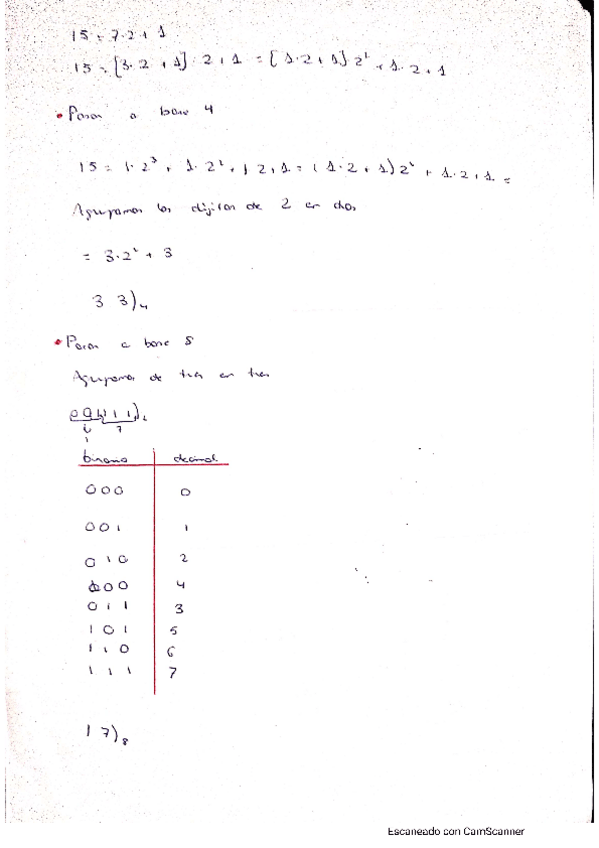 15 = 7·2+1
15 = [3·2+1]·2+1 = [1·2+1]2² + 1·2+1
• Pasar a base 4
15 = 1·2³ + 1·2² + 1·2+1 = (1·2+1)2² + 1·2+1 =
Agrupamos los dígitos de 2 en dos
= 3·2² + 3
3 3)₄
• Pasar a base 8
Agrupamos de tres en tres
001111)₂
1 7
binario decimal
000 0
001 1
010 2
100 4
011 3
101 5
110 6
111 7
17)₈
Escaneado con CamScanner